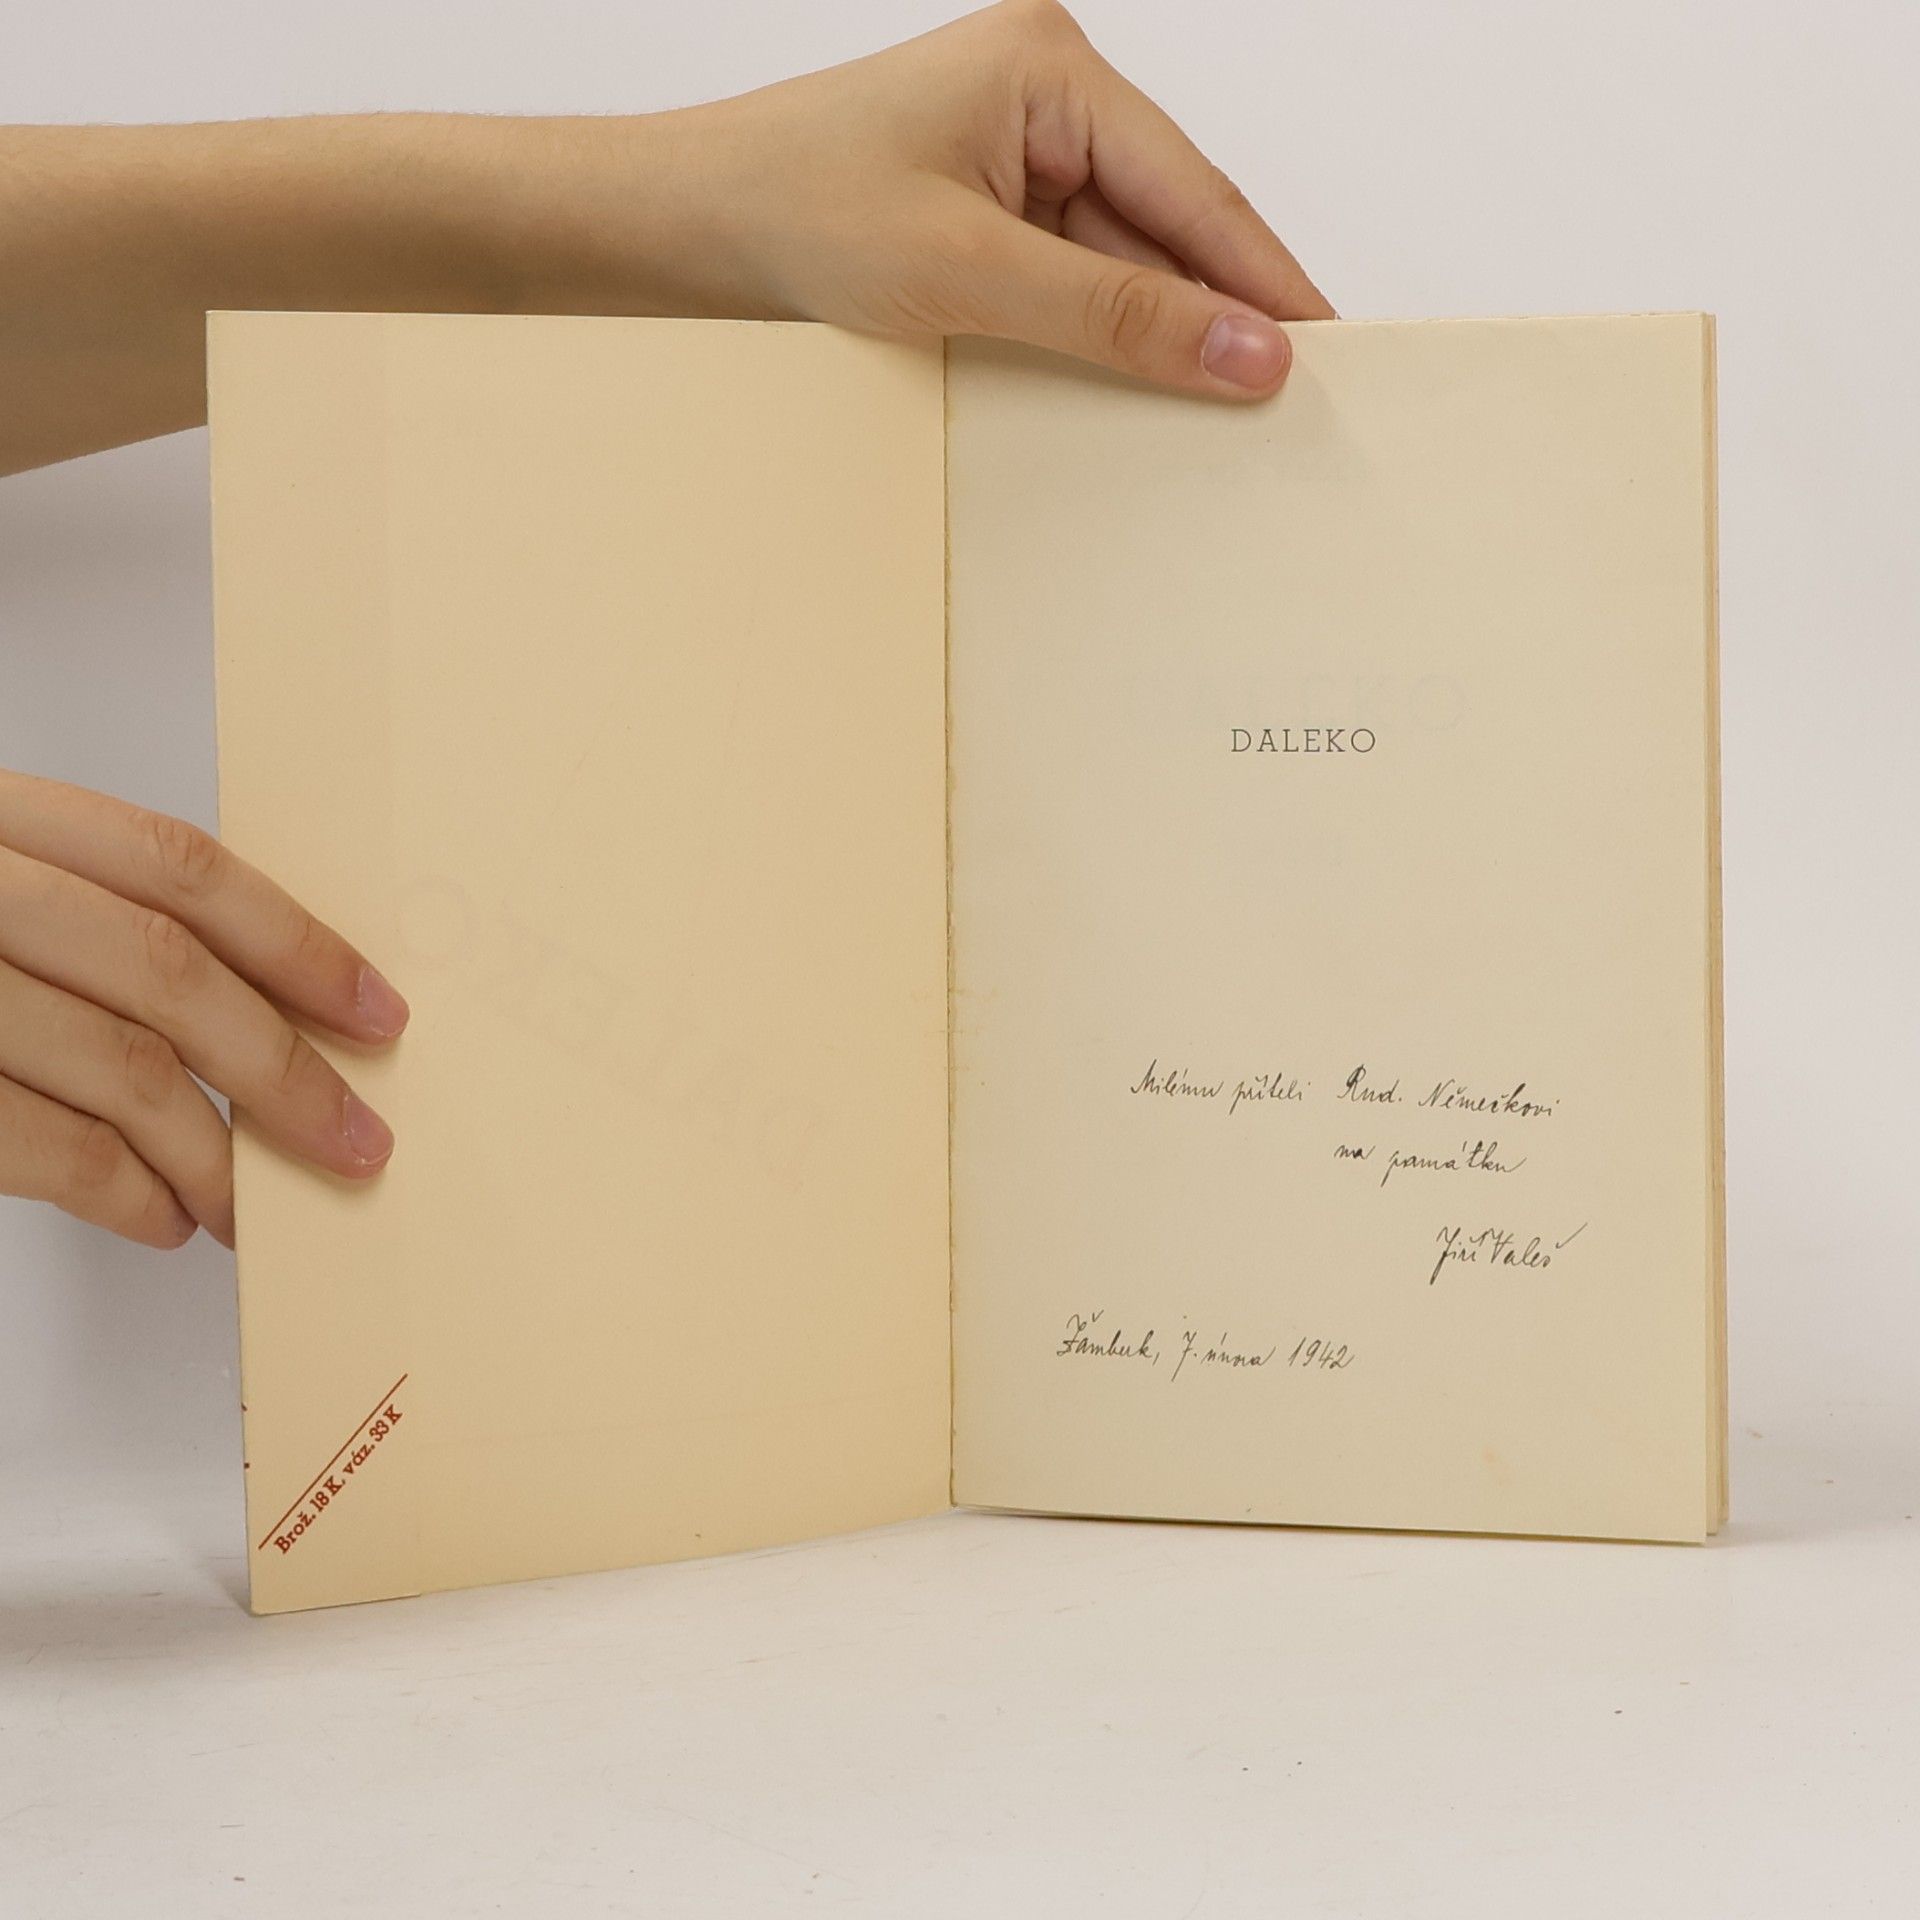 Brož. 18 K, váz. 33 K
DALEKO
Milému příteli Rud. Němečkovi
na památku
Jiří Valeš
Žamberk, 7. února 1942